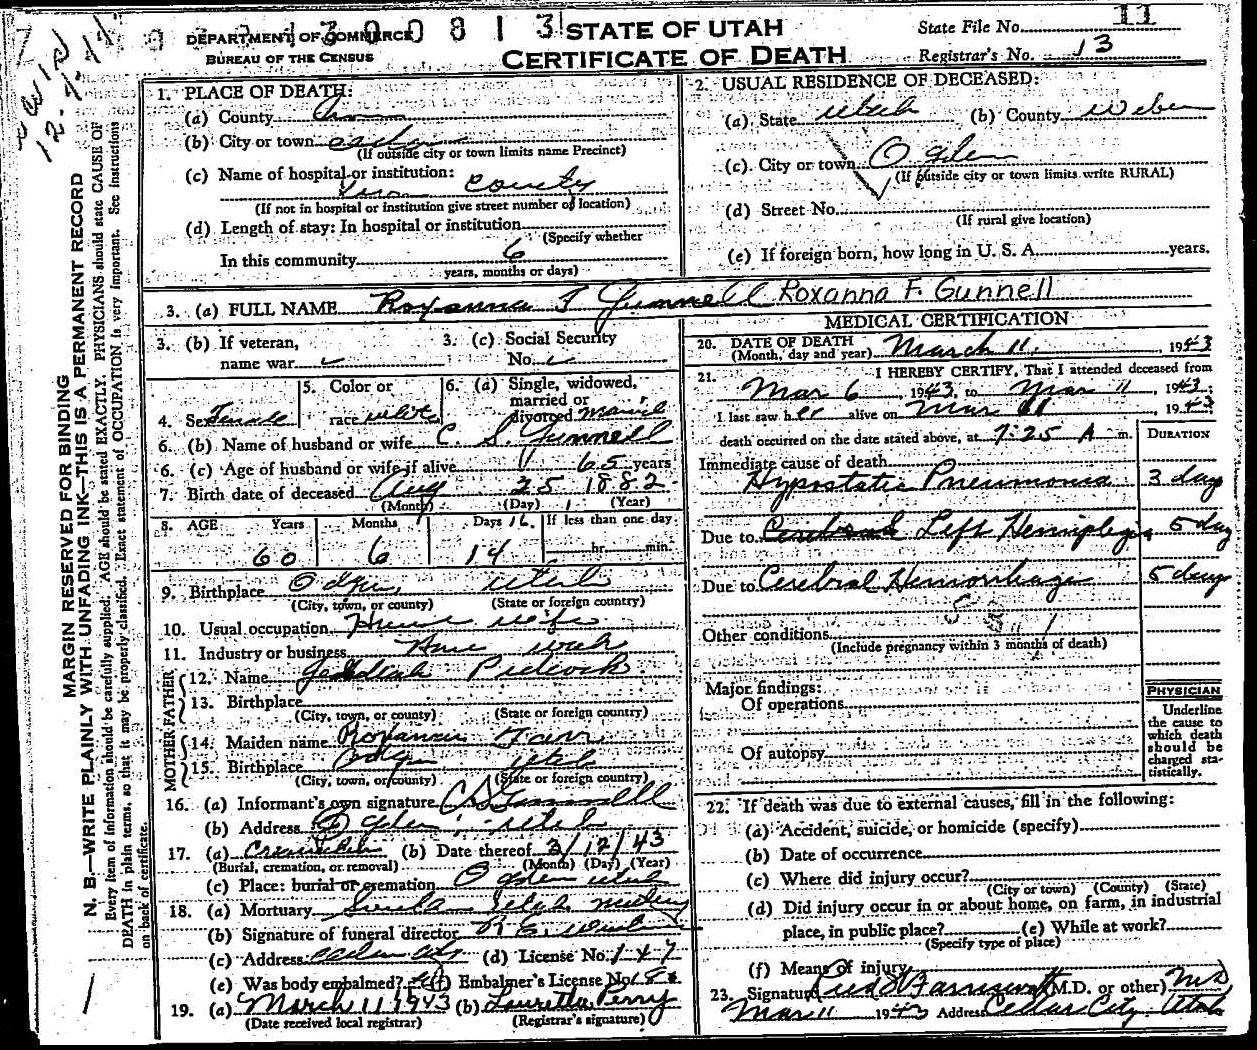 DEPARTMENT OF COMMERCE
BUREAU OF THE CENSUS
300813
STATE OF UTAH
CERTIFICATE OF DEATH
State File No. 11
Registrar's No. 13
MARGIN RESERVED FOR BINDING
N. B.—WRITE PLAINLY WITH UNFADING INK—THIS IS A PERMANENT RECORD
Every item of information should be carefully supplied. AGE should be stated EXACTLY. PHYSICIANS should state CAUSE OF
DEATH in plain terms, so that it may be properly classified. Exact statement of OCCUPATION is very important. See instructions
on back of certificate.
1. PLACE OF DEATH:
(a) County Iron
(b) City or town Cedar
(If outside city or town limits name Precinct)
(c) Name of hospital or institution:
Iron County
(If not in hospital or institution give street number of location)
(d) Length of stay: In hospital or institution
(Specify whether
In this community 6
years, months or days)
2. USUAL RESIDENCE OF DECEASED:
(a) State Utah (b) County Weber
(c) City or town Ogden
(If outside city or town limits write RURAL)
(d) Street No.
(If rural give location)
(e) If foreign born, how long in U. S. A. years.
3. (a) FULL NAME Roxanna F Gunnell Roxanna F. Gunnell
3. (b) If veteran,
name war
3. (c) Social Security
No.
4. Sex Female
5. Color or
race white
6. (a) Single, widowed,
married or
divorced
6. (b) Name of husband or wife C. S. Gunnell
6. (c) Age of husband or wife if alive 65 years
7. Birth date of deceased Aug 25 1882
(Month) (Day) (Year)
8. AGE Years Months Days 16 If less than one day
60 6 14 hr. min.
9. Birthplace Ogden Utah
(City, town, or county) (State or foreign country)
10. Usual occupation House wife
11. Industry or business
FATHER
12. Name Jedediah Pidcock
13. Birthplace
(City, town, or county) (State or foreign country)
MOTHER
14. Maiden name Roxanna Farr
15. Birthplace Ogden Utah
(City, town, or county) (State or foreign country)
16. (a) Informant's own signature C S Gunnell
(b) Address Ogden, Utah
17. (a) Cremation (b) Date thereof 3/12/43
(Burial, cremation, or removal) (Month) (Day) (Year)
(c) Place: burial or cremation Ogden Utah
18. (a) Mortuary Utah
(b) Signature of funeral director
(c) Address Cedar City (d) License No. 147
(e) Was body embalmed? (f) Embalmer's License No.
19. (a) March 11 1943 (b) Lauretta Perry
(Date received local registrar) (Registrar's signature)
MEDICAL CERTIFICATION
20. DATE OF DEATH
(Month, day and year) March 11, 1943
21. I HEREBY CERTIFY, That I attended deceased from
Mar 6, 1943, to Mar 11, 1943;
I last saw her alive on Mar 11 1943
death occurred on the date stated above, at 7:25 A m.
DURATION
Immediate cause of death
Hypostatic Pneumonia 3 days
Due to Left Hemiplegia 5 day
Due to Cerebral Hemorrhage 5 days
Other conditions
(Include pregnancy within 3 months of death)
Major findings:
Of operations
Of autopsy
PHYSICIAN
Underline
the cause to
which death
should be
charged sta-
tistically.
22. If death was due to external causes, fill in the following:
(a) Accident, suicide, or homicide (specify)
(b) Date of occurrence
(c) Where did injury occur?
(City or town) (County) (State)
(d) Did injury occur in or about home, on farm, in industrial
place, in public place? (e) While at work?
(Specify type of place)
(f) Means of injury
23. Signature (M.D. or other) M D
Mar 11 1943 Address Cedar City Utah